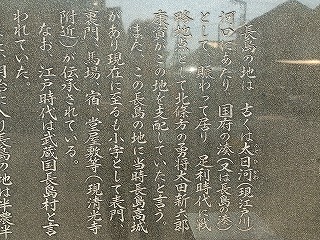 長島の地は、古くは大日河(現江戸川)
河口にあたり、国府の湊(又は長島の湊)
として賑わって居り、足利時代に戦
略地点として北條方の勇将太田新六郎
康資がこの地を支配していたと言う。
また、この長島の地に当時長島高城
があり現在に至るも小字として表門、
裏門、馬場、宿、堂屋敷等(現清光寺
附近)が伝承されている。
なお、江戸時代は武蔵国長島村と言
われていた。
に入り長島の地は半農半